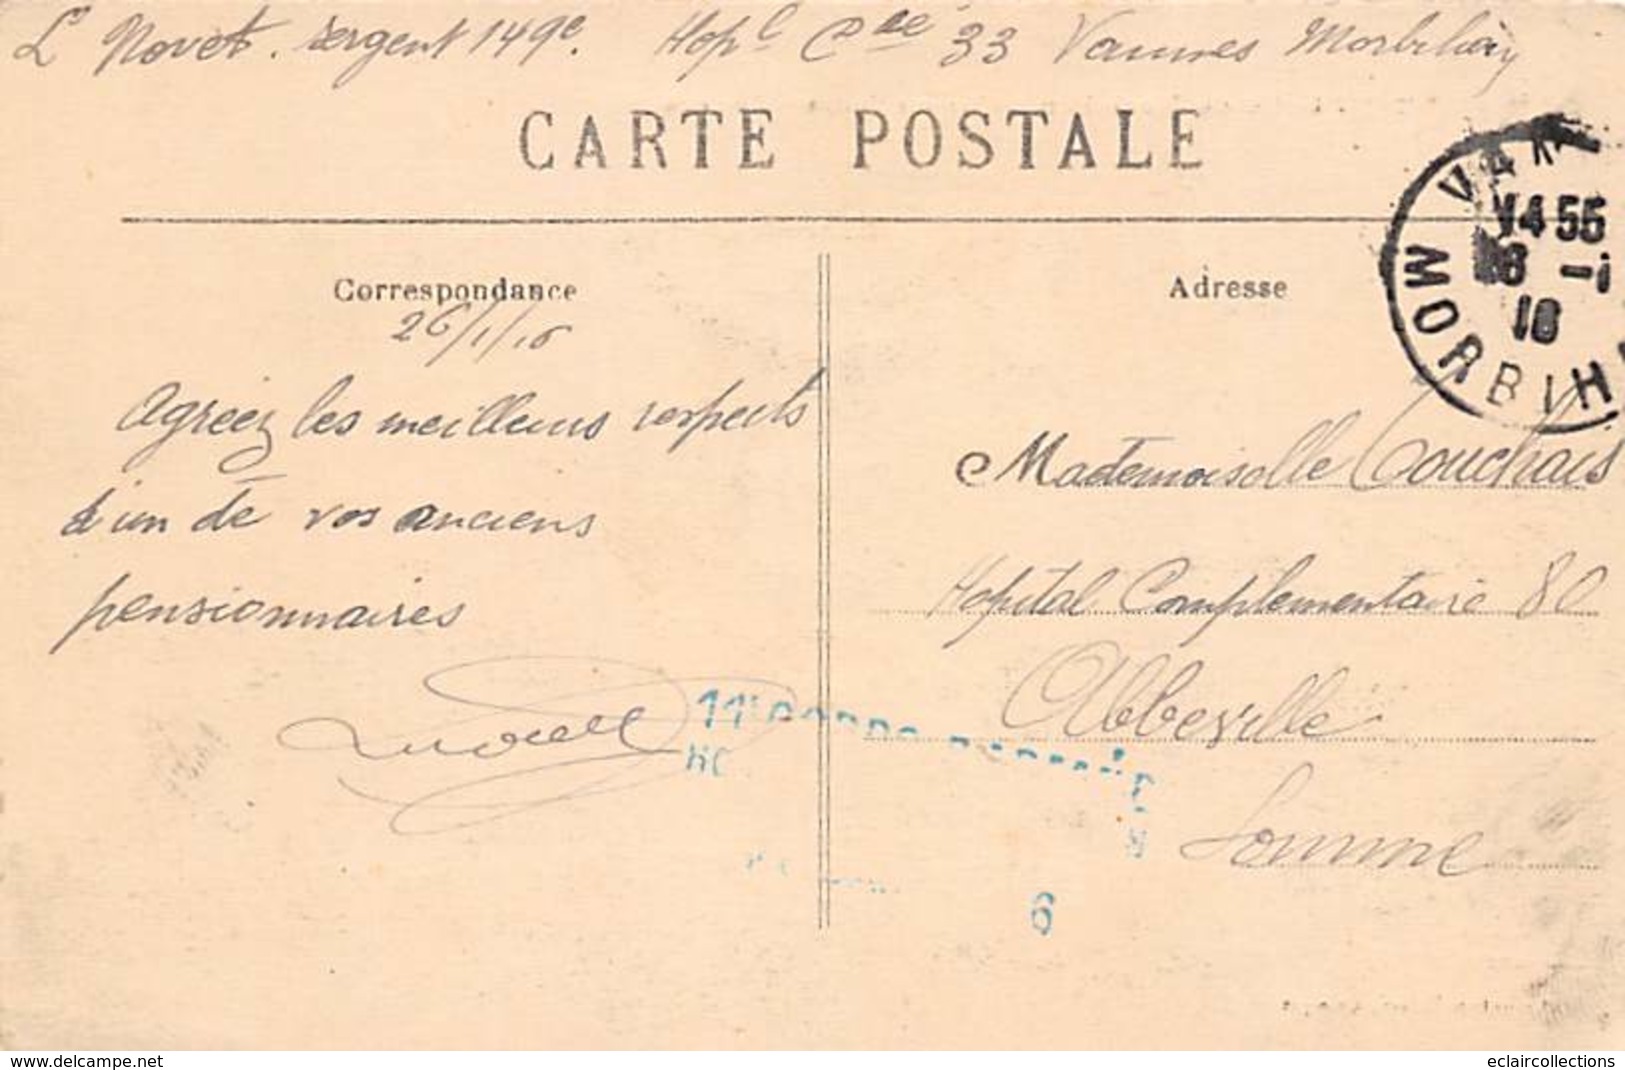 L Novet. sergent 149e. Hopl Cre 33 Vannes Morbihan
CARTE POSTALE
MORBIH
Correspondance
Adresse
26/1/16
agréez les meilleurs respects
d'un de vos anciens
pensionnaires
Mademoiselle Couchais
Hopital Complementaire 80
Abbeville
Somme
6
www.delcampe.net
eclaircollections